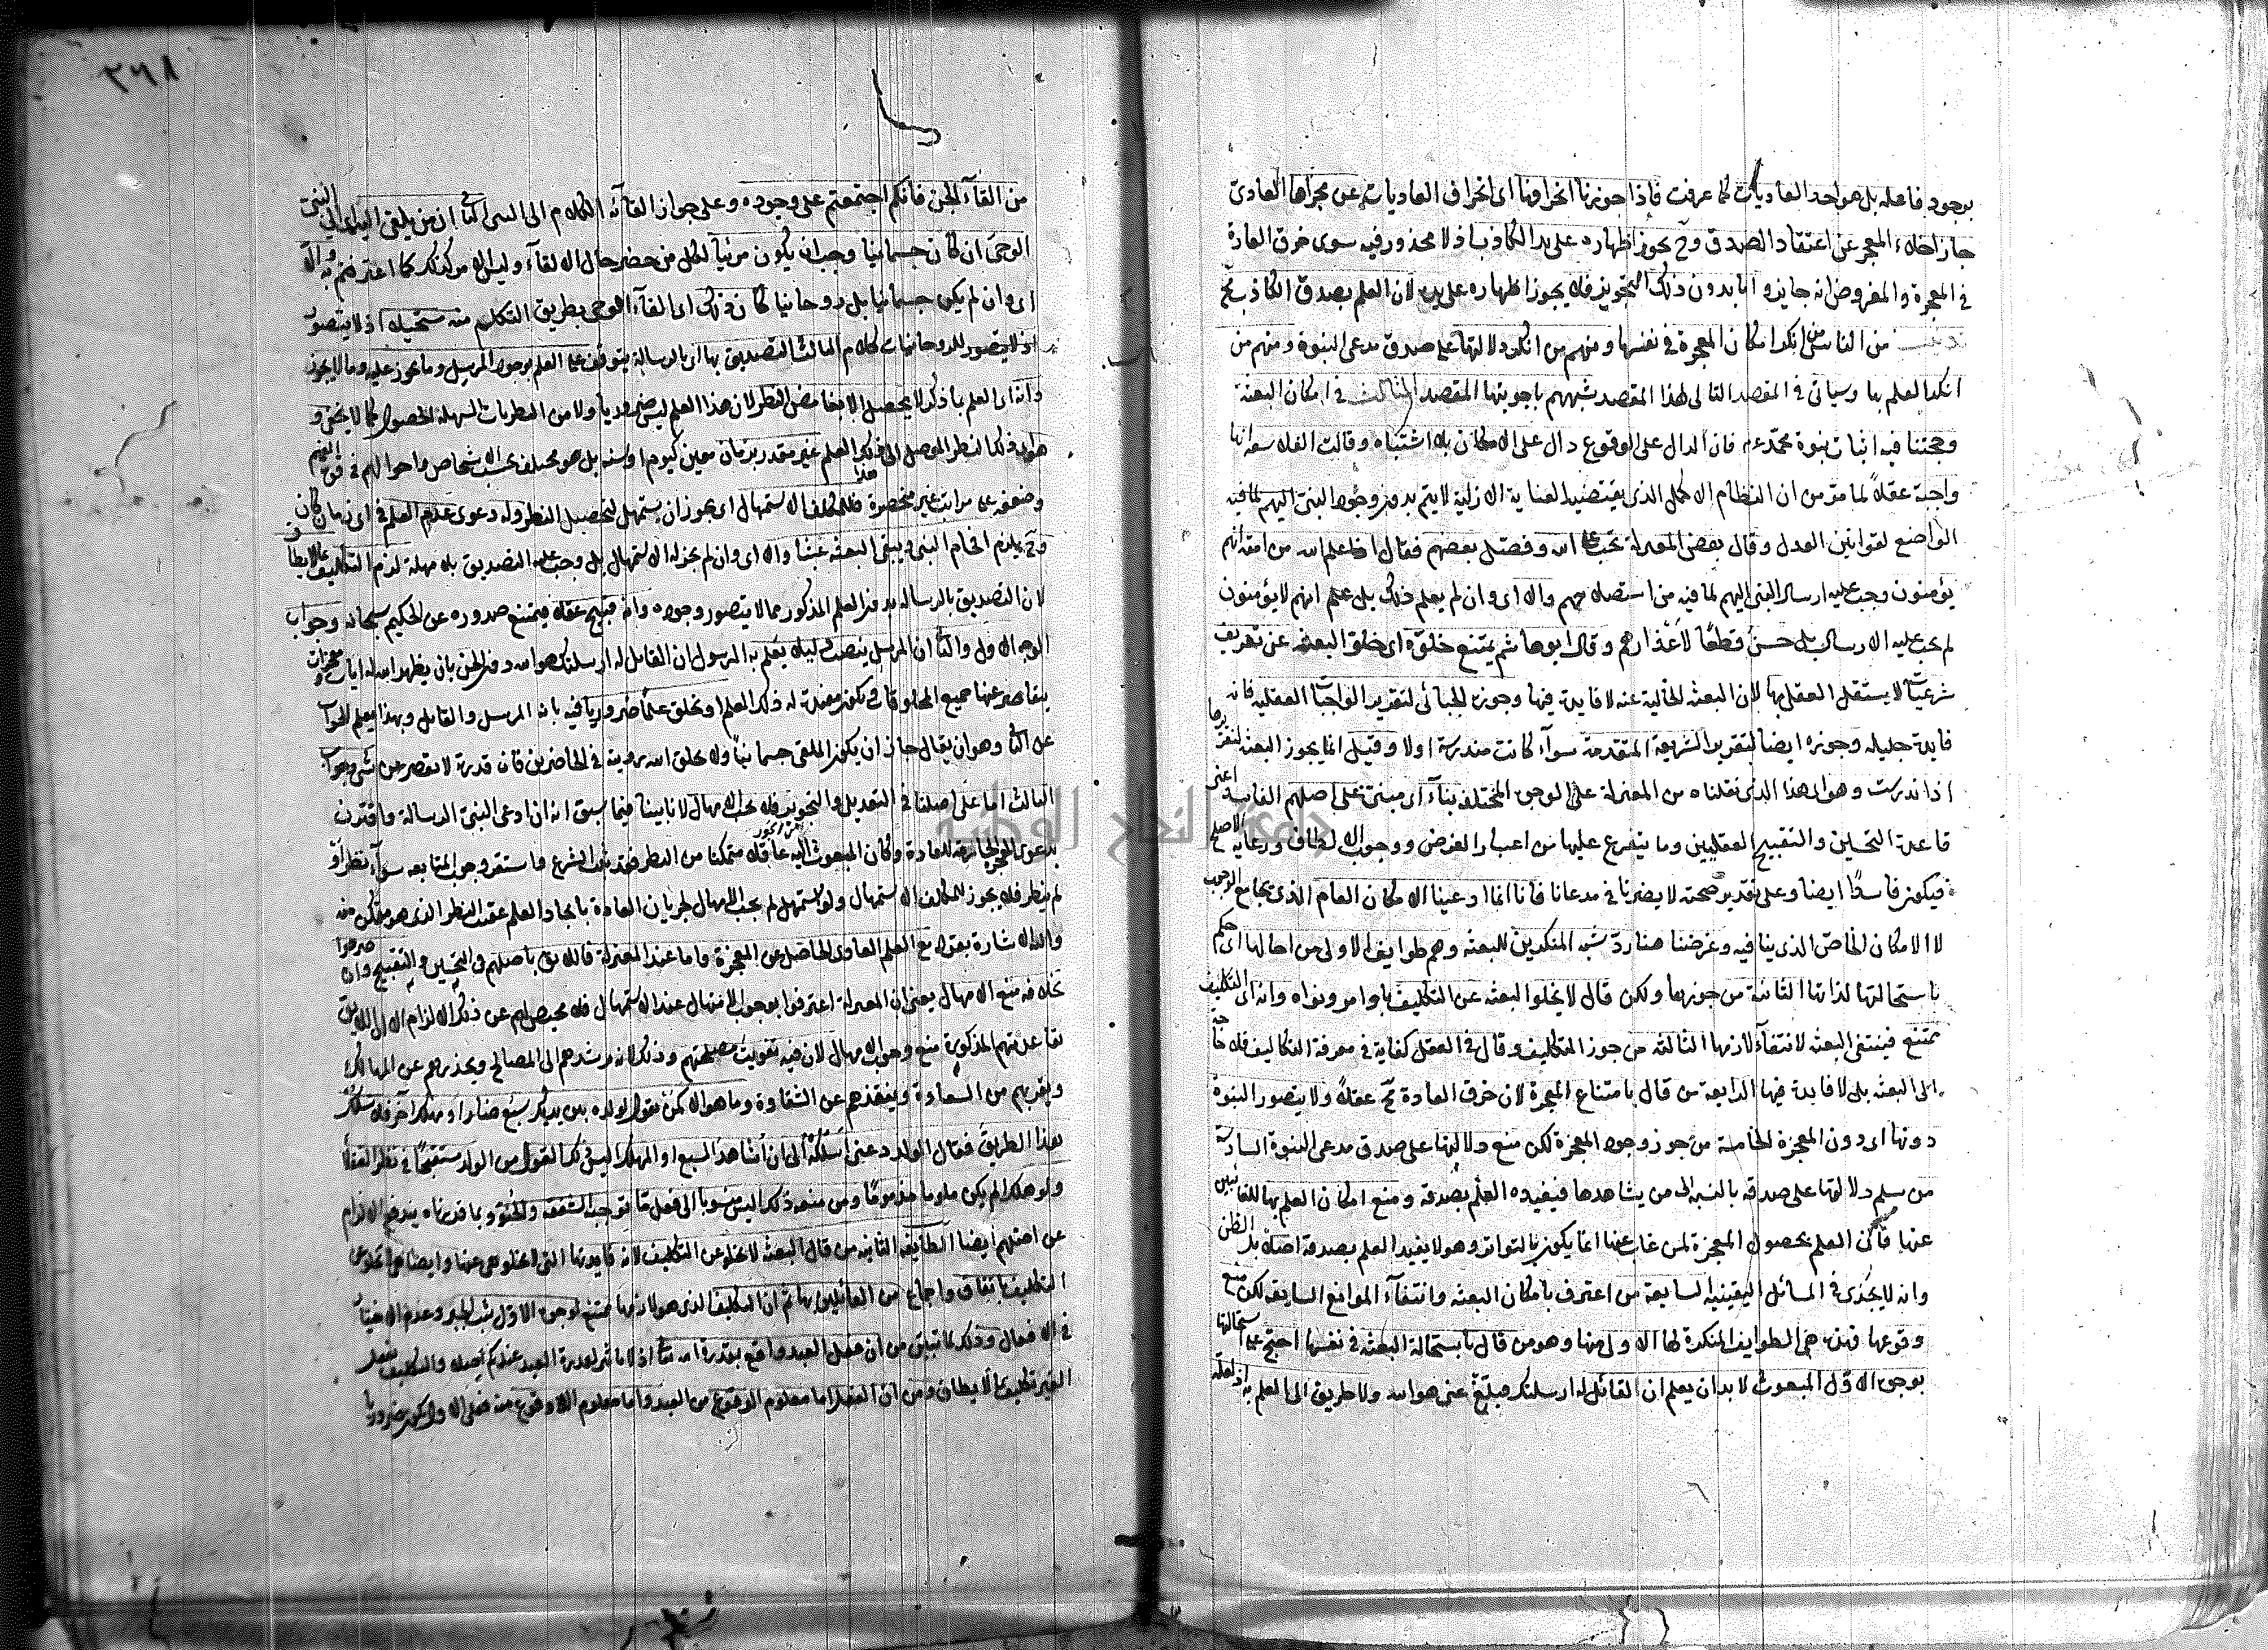 بوجود فاعله بل هو احد العاديات كما عرفت فاذا جوزنا انخرافها اى انخراق العاديات عن مجراها العادى
جاز اخلاء المعجز عن اعتقاد الصدق وح يجوز اظهاره على يد الكاذب اذ لا محذور فيه سوى خرق العادة
فى المعجزة والمفروض انه جايز واما بدون ذلك التجويز فلا يجوز اظهاره على يده لان العلم بصدق الكاذب مح
من الناس من انكر امكان المعجزة فى نفسها ومنهم من انكر دلالتها على صدق مدعى النبوة ومنهم من
انكر العلم بها وسياتى فى المقصد التالى لهذا المقصد شبههم باجوبتها المقصد الثالث فى امكان البعثة
وحجتنا فيه اثبات نبوة محمد عم فان الدال على الوقوع دال على الامكان بلا اشتباه وقالت الفلاسفه انها
واجبة عقلاً لما مر من ان النظام الاكمل الذى يقتضيه العناية الازلية لا يتم بدون وجود النبى اليهم لما فيه
الواضع لقوانين العدل وقال بعض المعتزلة تجب على الله وفصل بعضهم فقال اذا علم الله من امة انهم
يؤمنون وجب عليه ارسال النبى اليهم لما فيه من استصلاحهم والا اى وان لم يعلم ذلك بل علم انهم لا يؤمنون
لم يجب عليه الارسال بل حسن قطعًا لاعذارهم وقال ابو هاشم يمتنع خلوه اى خلو البعثه عن تعريف
شرعيات لا يستقل العقل بها لان البعثه الخالية عنه لا فايدة فيها وجوزه الجبائى لتقرير الواجبات العقليه فانه
فايدة جليله وجوزه ايضا لتقرير الشريعة المتقدمة سوآء كانت مندرسة اولا وقيل انما يجوز البعثه لتقريرها
اذا اندرست وهو اى هذا الذى نقلناه من المعتزلة على الوجوه المختلفه بنآء اى مبنى على اصلهم الفاسد اعنى
قاعدة التحسين والتقبيح العقليين وما يتفرع عليها من اعتبار الغرض ووجوب الالطاف ورعاية الاصلح
فيكون فاسدًا ايضا وعلى تقدير صحته لا يضرنا فى مدعانا فانا انما ادعينا الامكان العام الذى يجامع الوجوب
لا الامكان الخاص الذى ينافيه وغرضنا هنا رد شبه المنكرين للبعثه وهم طوايف الاولى من احالها اى حكم
باستحالتها لذاتها الثانية من جوزها ولكن قال لا يخلوا البعثه عن التكليف باوامر ونواه وانه اى التكليف
يمتنع فينتفى البعثه لانتفآء لازمها الثالثه من جوز التكليف وقال فى العقل كفاية فى معرفة التكاليف فلا حاجة
الى البعثه بل لا فايدة فيها الرابعة من قال بامتناع المعجزة لان خرق العادة مح عقلاً ولا يتصور النبوة
دونها اى دون المعجزة الخامسة من جوز وجود المعجزة لكن منع دلالتها على صدق مدعى النبوة السادسة
من سلم دلالتها على صدقه بالنسبة الى من يشاهدها فيفيده العلم بصدقه ومنع امكان العلم بها للغائبين
عنها فان العلم بحصول المعجزة لمن غاب عنها انما يكون بالتواتر وهو لا يفيد العلم بصدقه اصلا بل الظن
وانه لا يجدى فى المسائل اليقينيه السابعة من اعترف بامكان البعثه وانتفآء الموانع السابقه لكن منع
وقوعها فهذه هى الطوايف المنكرة لها الاولى منها وهو من قال باستحالة البعثه فى نفسها احتج على استحالتها
بوجوه الاول المبعوث لا بد ان يعلم ان القائل له ارسلتك فبلغ عنى هو الله ولا طريق الى العلم به اذ لعله
من القآء الجن فانكم اجتمعتم على وجوده وعلى جواز القآئه الكلام الى النبى الثانى ان من يلقى اليه اى الى النبى
الوحى ان كان جسمانيا وجب ان يكون مرئيا لكل من حضر حال الالقآء وليس الامر كذلك كما اعترفتم به والا
اى وان لم يكن جسمانيا بل روحانيا كان ذلك اى القآء الوحى بطريق التكلم منه مستحيلا اذ لا يتصور
اذ لا يتصور للروحانيات كلام الثالث التصديق بها اى بالرسالة يتوقف على العلم بوجود المرسل وما يجوز عليه وما لا يجوز
وانه اى العلم بما ذكر لا يحصل الا بغامض النظر لان هذا العلم ليس ضروريا ولا من النظريات السهلة الحصول كما لا يخفى و
هو اى ذلك النظر الموصل الى ذلك العلم غير مقدر بزمان معين كيوم او سنه بل هو مختلف بحسب الاشخاص واحوالهم فى قوة الفهم
وضعفه على مراتب غير منحصرة فللمكلف الاستمهال اى يجوز ان يستمهل لتحصيل النظر وله دعوى عدم العلم فى اى زمان كان
وح يلزم افحام النبى ويبقى البعثه عبثا والا اى وان لم يجز له الاستمهال بل وجب عليه التصديق بلا مهلة لزم التكليف بما لا يطاق
لان التصديق بالرساله بدون العلم المذكور مما لا يتصور وجوده وانه قبيح عقلا فيمتنع صدوره عن الحكيم سبحانه وجواب
الوجه الاول والثانى ان المرسل ينصب دليلا يعلم به الرسول ان القائل له ارسلتك هو الله دون الجن بان يظهر الله له ايات ومعجزات
يتقاصر عنها جميع المخلوقات فيكون مفيدة له ذلك العلم او يخلق علمًا ضروريا فيه بانه المرسل والقائل وبهذا يعلم الجواب
عن الثانى وهو ان يقال جاز ان يكون الملقى جسمانيًا ولا يخلق الله رويته فى الحاضرين فان قدرة لا تقصر عن شى وجواب
الثالث اما على اصلنا فى التعديل والتجوير فلا يجب الامهال لانا بينا فيما سبق انه ان ادعى النبى الرسالة واقترن
بدعواه المعجزة الخارقة للعادة وكان المبعوث اليه عاقلا متمكنا من النظر فقد ثبت الشرع واستقر وجوب المتابعه سوآء نظر او
لم ينظر فلا يجوز للمكلف الاستمهال ولو استمهل لم يجب الامهال لجريان العادة بايجاد العلم عقيب النظر الذى هو متمكن منه
واما عند المعتزلة فاللائق باصلهم فى التحسين والتقبيح وان صرحوا
بخلافه منع الامهال يعنى ان المعتزلة اعترفوا بوجوب الامهال عند الاستمهال فلا محيص لهم عن ذلك الالزام الا ان اللايق
لقاعدتهم المذكورة منع وجوب الامهال لان فيه تفويت مصلحتهم وذلك لانه يرشدهم الى المصالح ويحذرهم عن المهالك
ويقربهم من السعادة وينقذهم عن الشقاوة وما هو الا كمن يقول لولده بين يديك سبع ضار او مهلك آخر فلا تسلك
هذا الطريق فقال الولد دعنى اسلكه الى ان اشاهد السبع او المهلك اليس ذلك القول من الولد مستقبحًا فى نظر العقلآ
ولو هلك الم يكن ملوما مذمومًا ومن منعه ذلك اليس منسوبا الى فعل ما توجبه الشفقه والحنو وبما قررناه يندفع الالزام
عن اصلهم ايضا الطايفه الثانيه من قال البعثه لا تخلو عن التكليف لانه فايدتها التى لا تخلو هى عنها وايضا هى لا تخلو عن
التكليف باتفاق واجماع من القائلين بها ثم ان التكليف الذى هو لازمها ممتنع لوجوه الاول ثبت الجبر وعدم الاختيار
فى الافعال وذلك لما تبين من ان فعل العبد واقع بقدرة الله تعالى اذ لا تاثير لقدرة العبد عندكم اصلا والتكليف بفعل
الغير تكليف بما لا يطاق ومن ان الفعل اما معلوم الوقوع من العبد واما معلوم اللاوقوع منه فعلى الاول يكون ضروريا